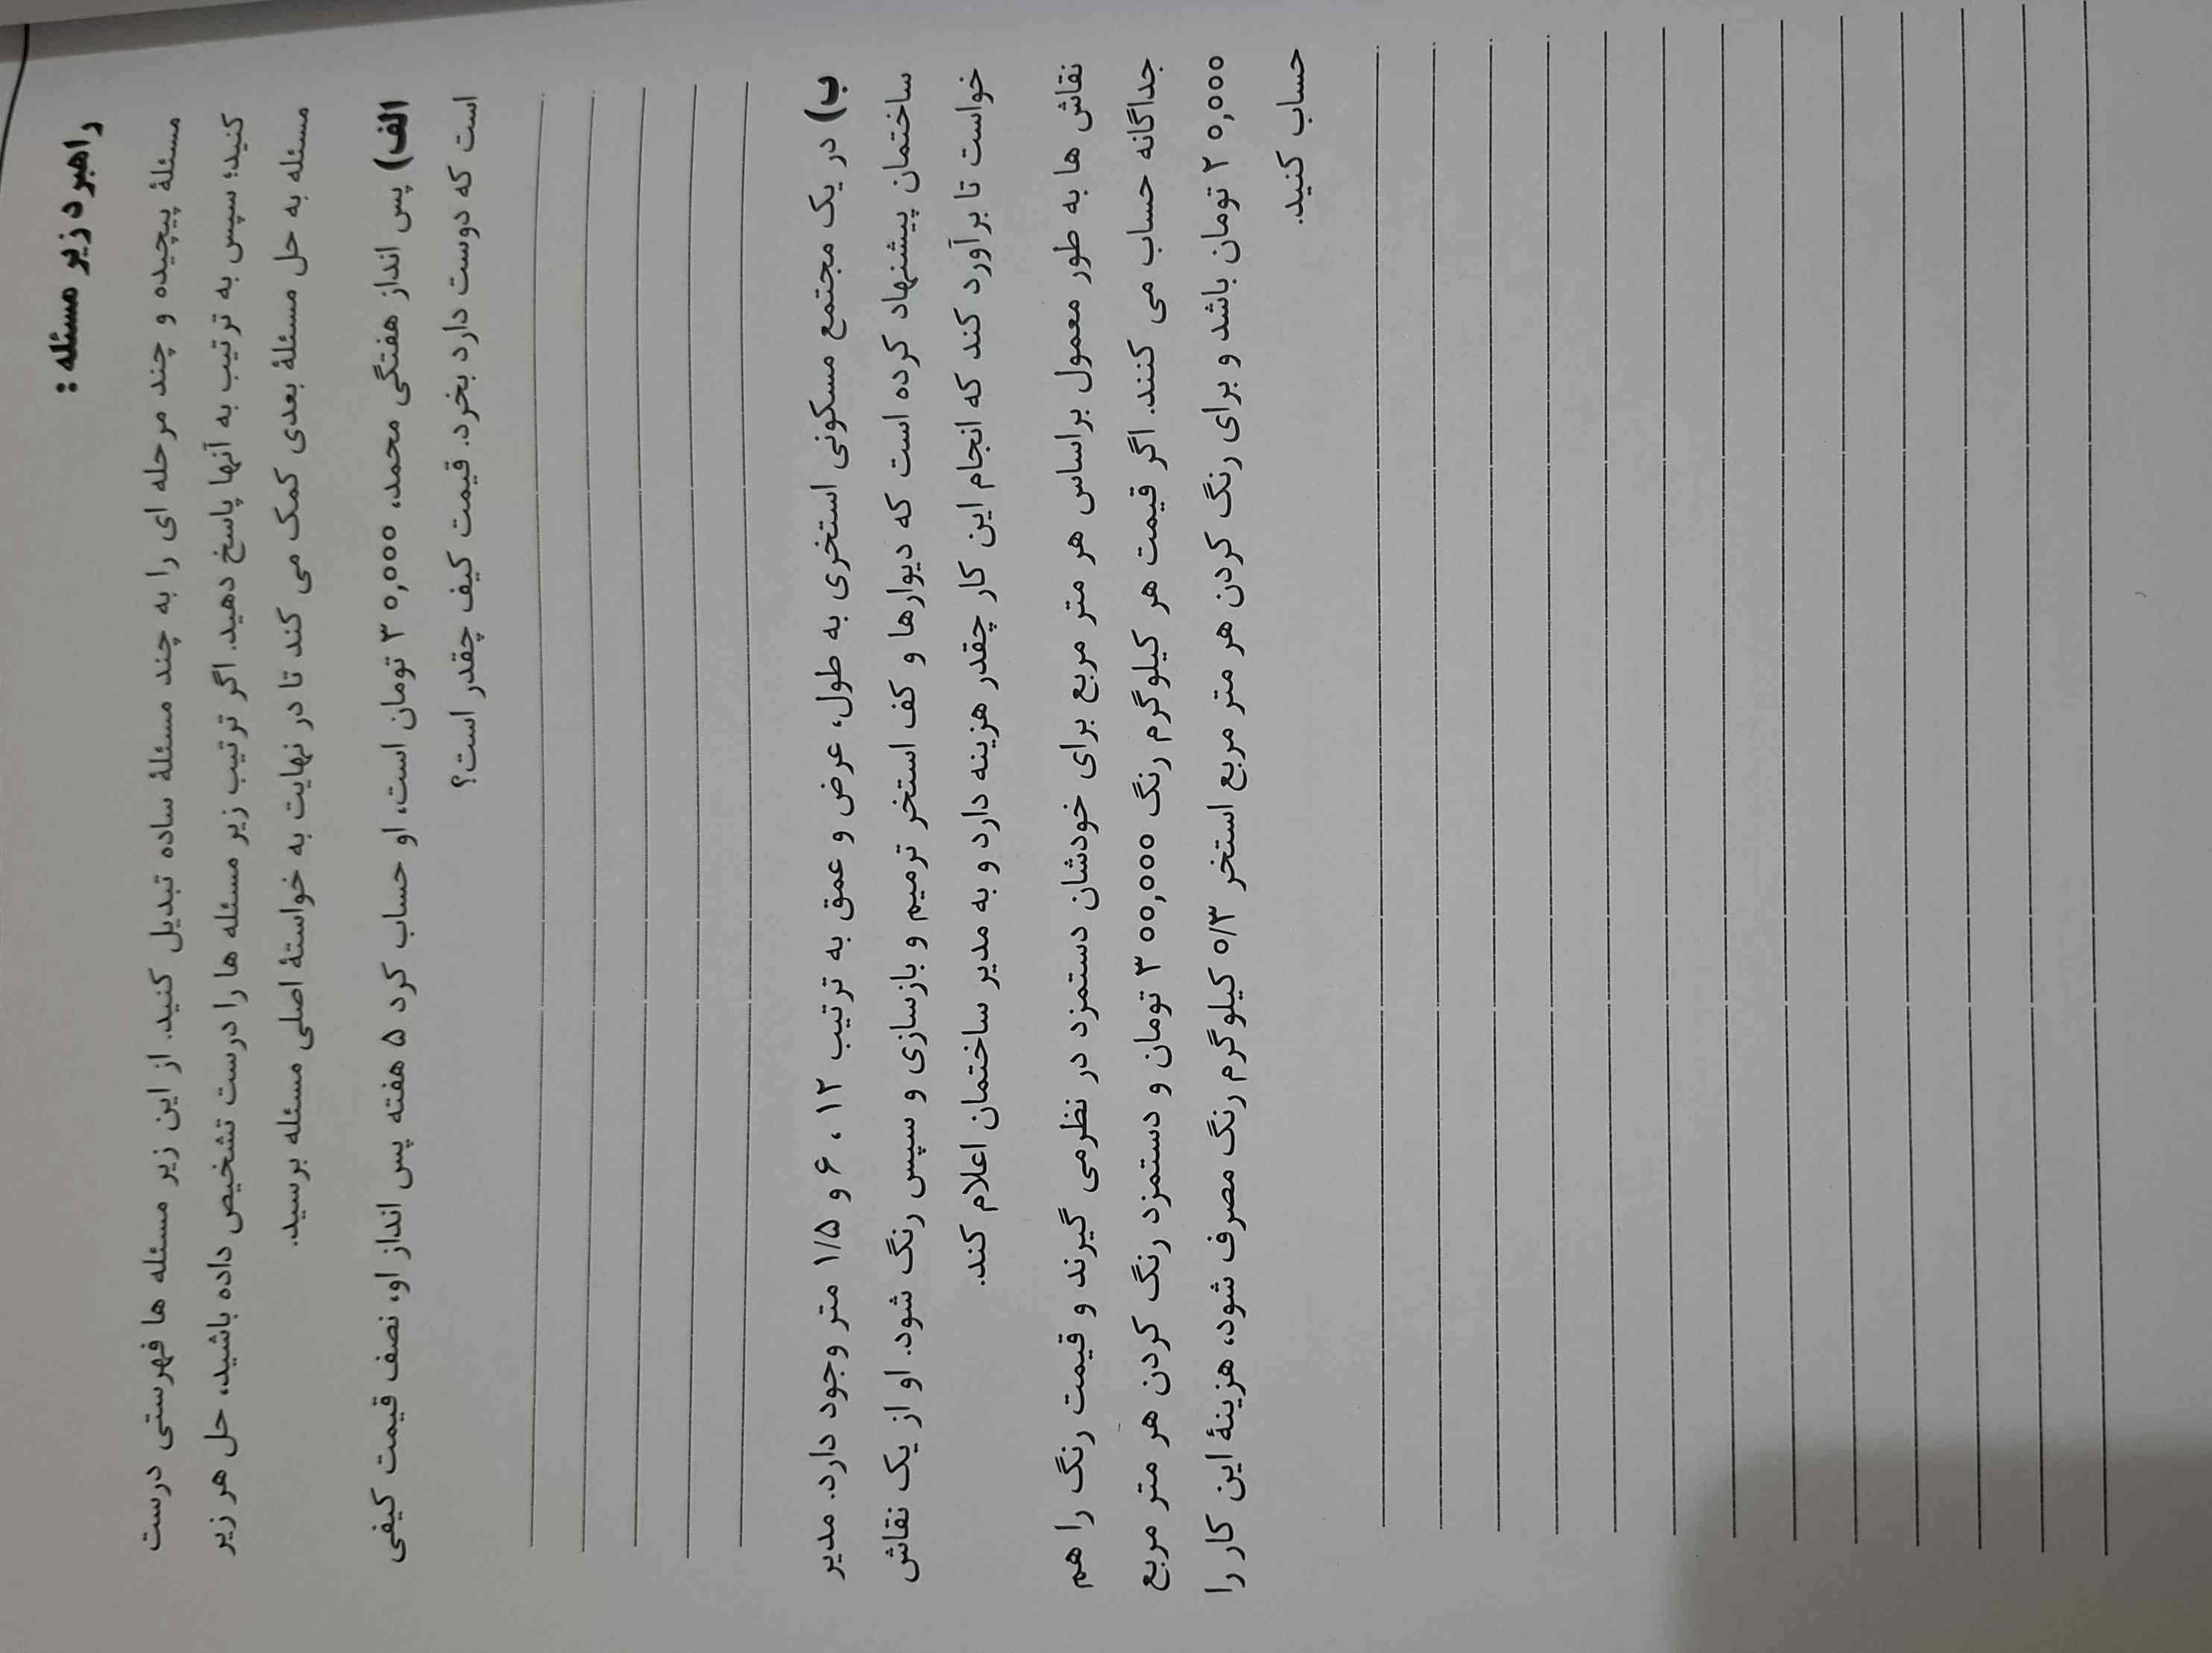 راهبرد زیر مسئله :
مسئلهٔ پیچیده و چند مرحله ای را به چند مسئلهٔ ساده تبدیل کنید. از این زیر مسئله ها فهرستی درست
کنید؛ سپس به ترتیب به آنها پاسخ دهید. اگر ترتیب زیر مسئله ها را درست تشخیص داده باشید، حل هر زیر
مسئله به حل مسئلهٔ بعدی کمک می کند تا در نهایت به خواستهٔ اصلی مسئله برسید.
الف) پس انداز هفتگی محمد، ۳۰,۰۰۰ تومان است، او حساب کرد ۵ هفته پس انداز او، نصف قیمت کیفی
است که دوست دارد بخرد. قیمت کیف چقدر است؟
ب) در یک مجتمع مسکونی استخری به طول، عرض و عمق به ترتیب ۱۲ ، ۶ و ۱/۵ متر وجود دارد. مدیر
ساختمان پیشنهاد کرده است که دیوارها و کف استخر ترمیم و بازسازی و سپس رنگ شود. او از یک نقاش
خواست تا برآورد کند که انجام این کار چقدر هزینه دارد و به مدیر ساختمان اعلام کند.
نقاش ها به طور معمول براساس هر متر مربع برای خودشان دستمزد در نظر می گیرند و قیمت رنگ را هم
جداگانه حساب می کنند. اگر قیمت هر کیلوگرم رنگ ۳۰۰,۰۰۰ تومان و دستمزد رنگ کردن هر متر مربع
۲۰,۰۰۰ تومان باشد و برای رنگ کردن هر متر مربع استخر ۰/۳ کیلوگرم رنگ مصرف شود، هزینهٔ این کار را
حساب کنید.